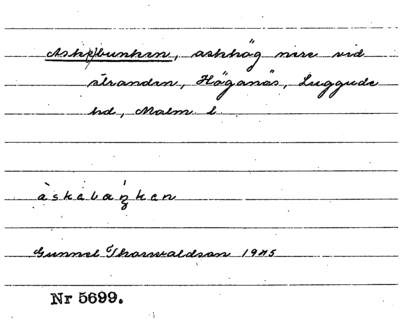 Ask(e)bunken, askhög nere vid
stranden, Höganäs, Luggude
hd, Malm l
àskəbáŋkən
Gunnel Thorwaldson 1945
Nr 5699.